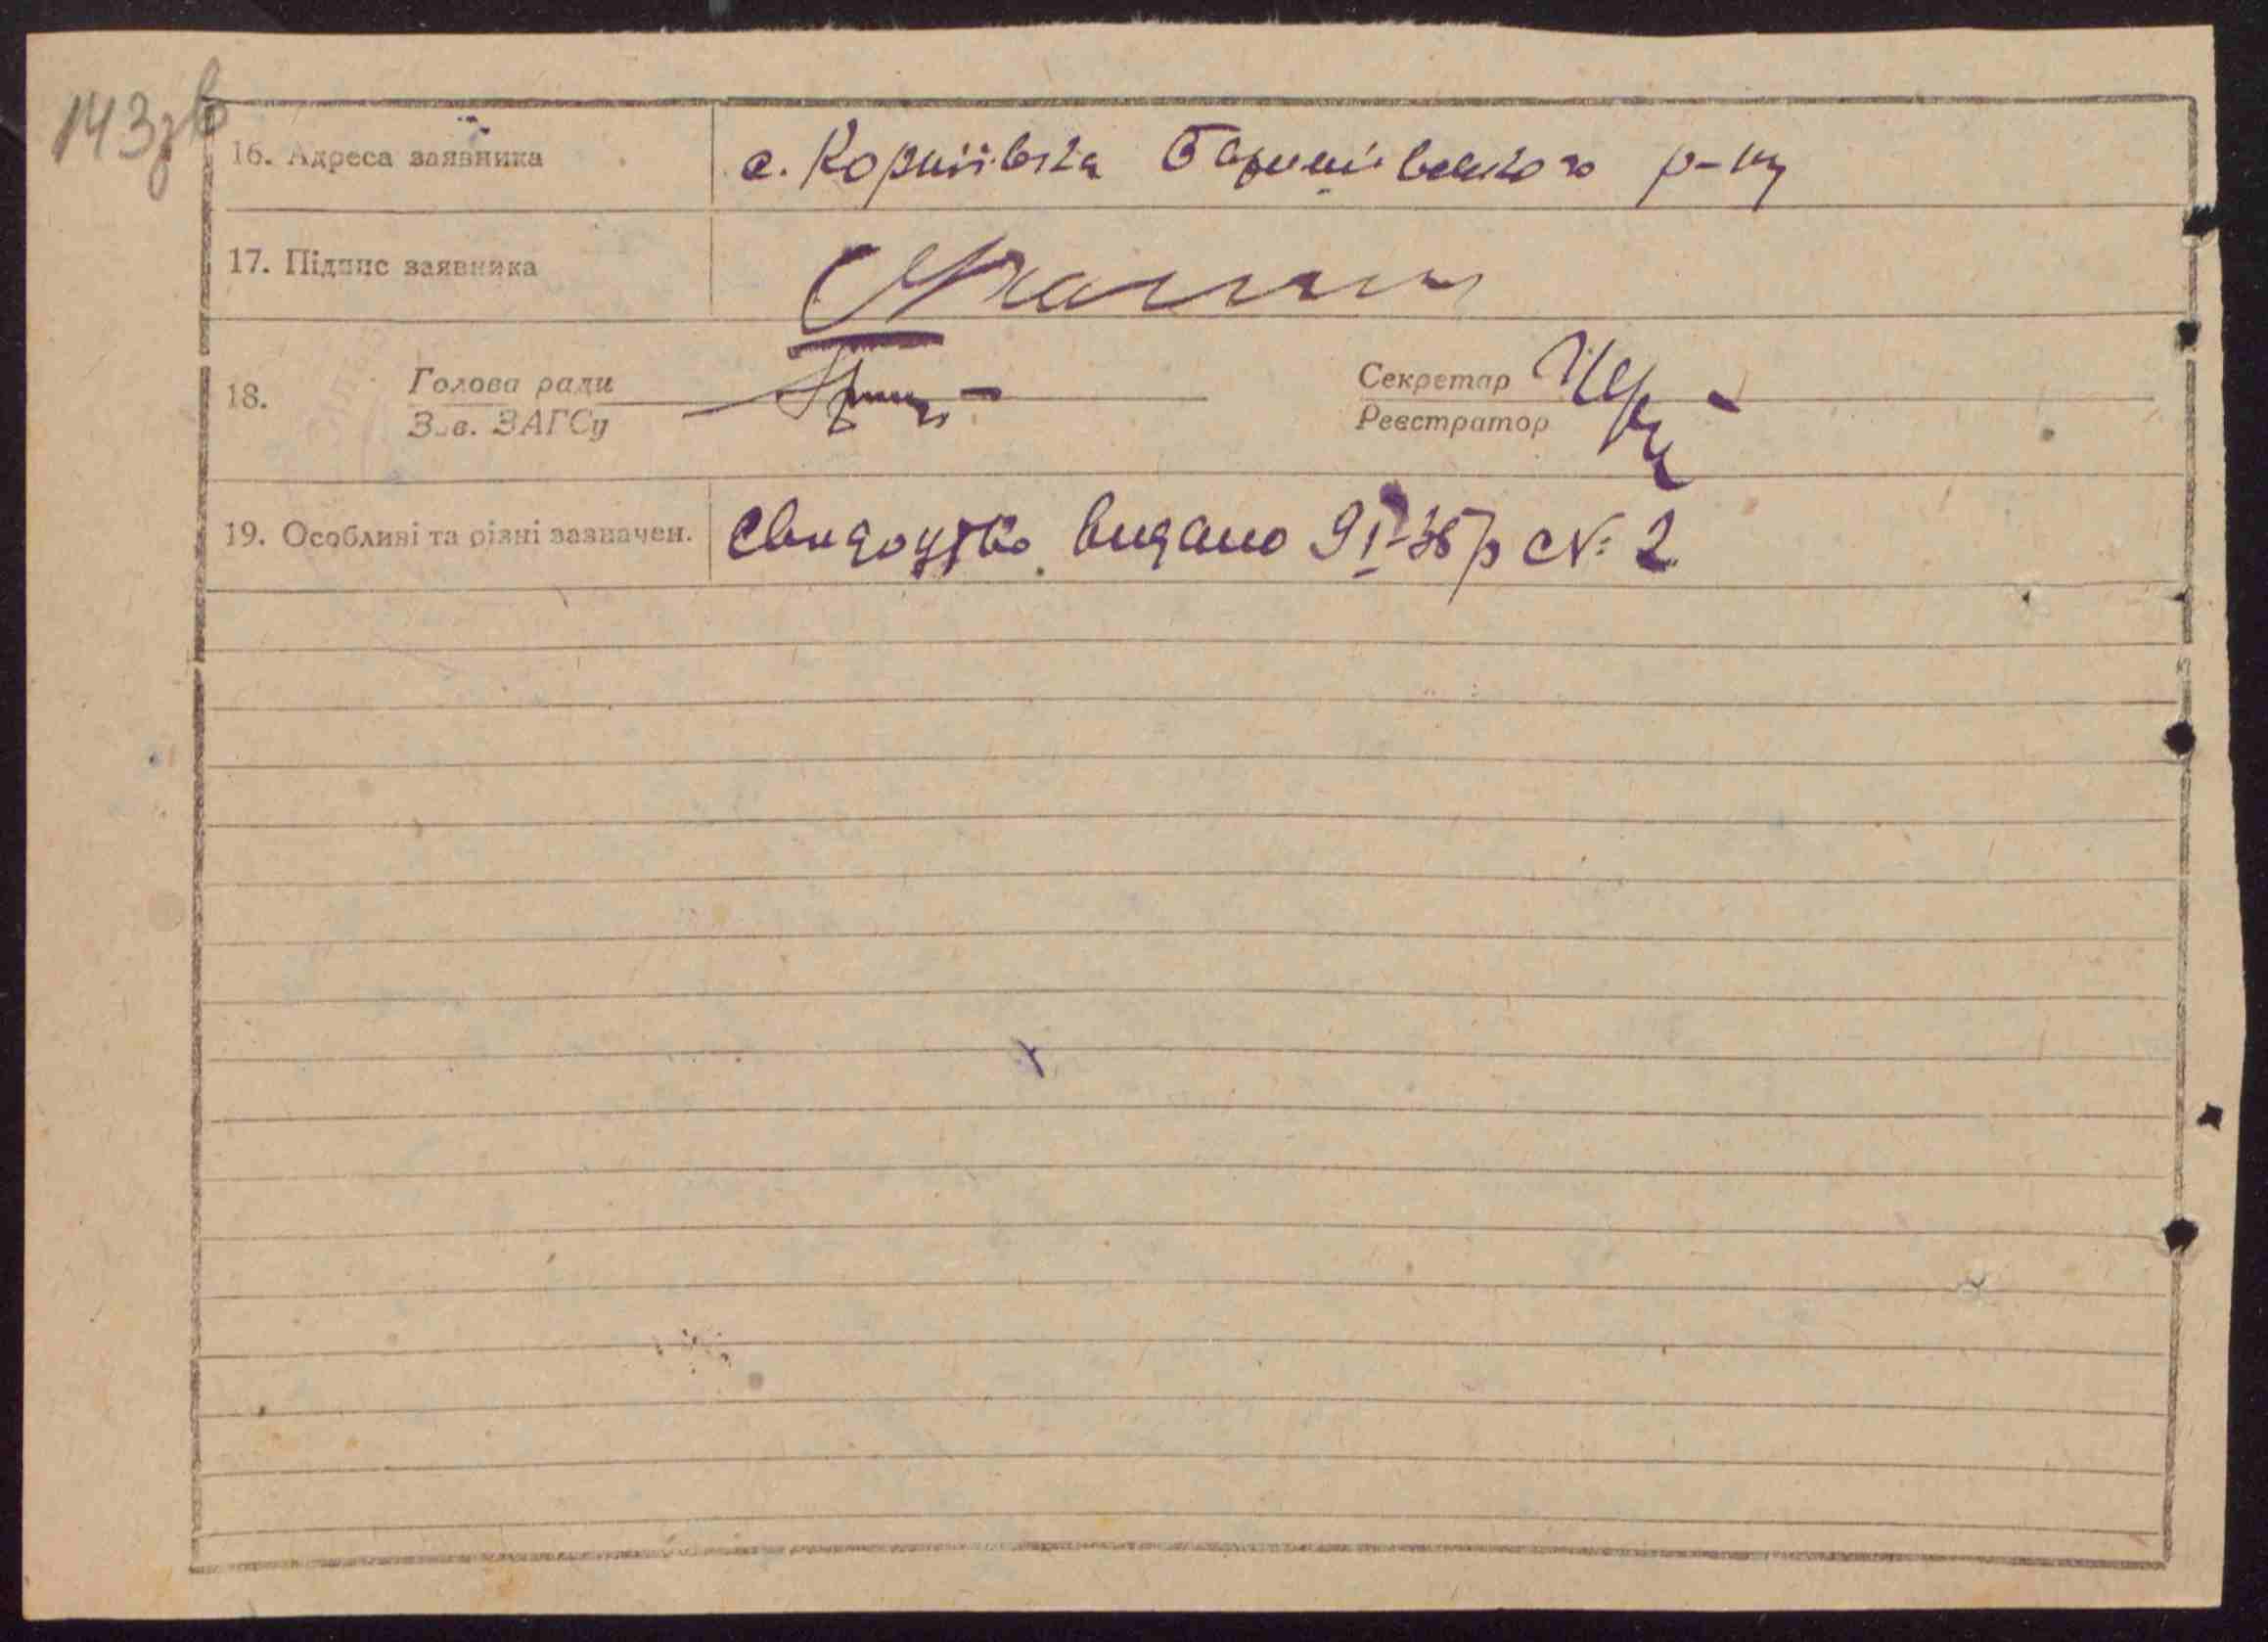 143зв
16. Адреса заявника с. Корніївка Баришівського р-ну
17. Підпис заявника
18. Голова ради Секретар
Зав. ЗАГСу Реєстратор
19. Особливі та різні зазначен. Свидоцтво видано 9 I-38 р № 2